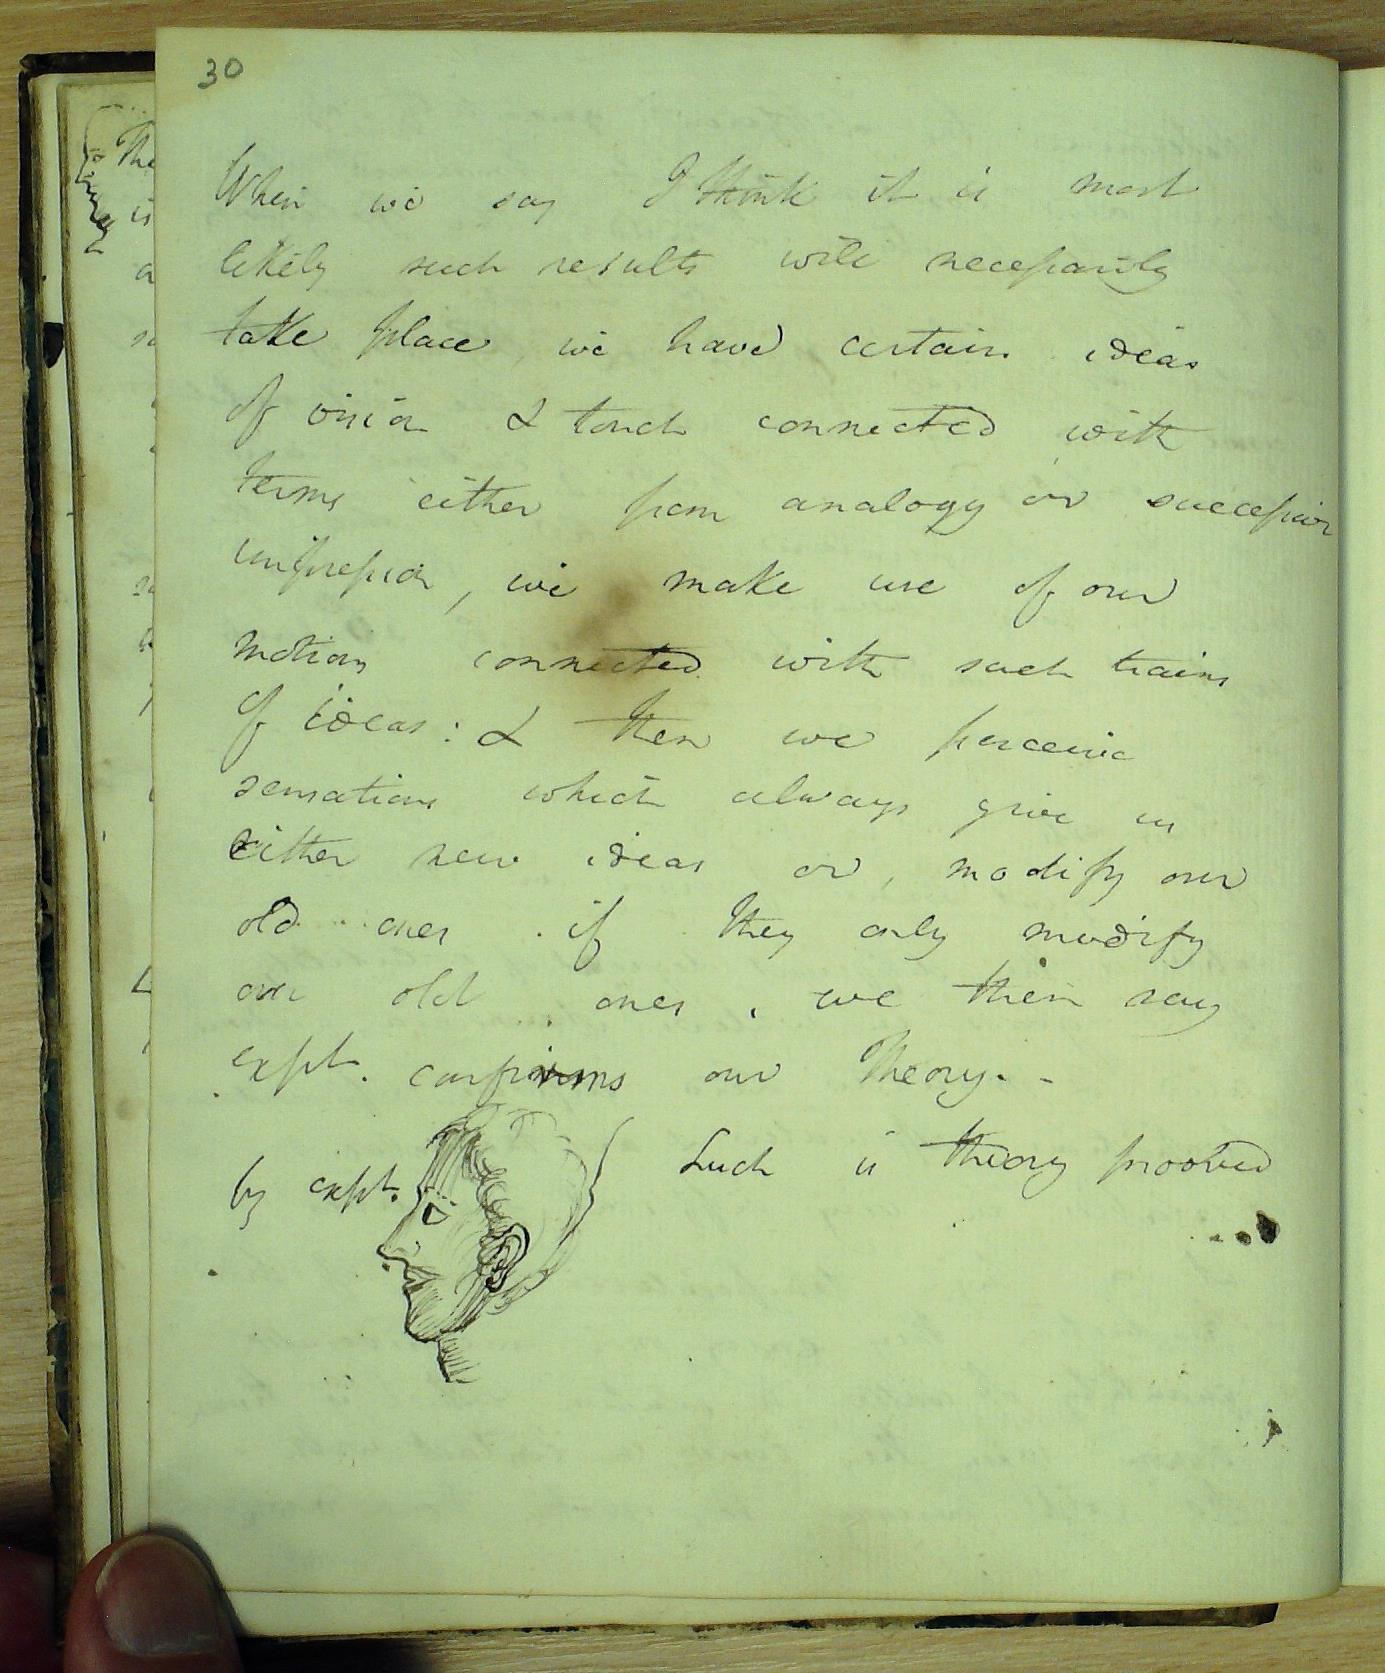 30
When we say I think it is most
likely such results will necessarily
take place we have certain ideas
of vision & touch connected with
terms either from analogy or succession
impression, we make use of our
motions connected with such trains
of ideas: & then we perceive
sensations which always give us
either new ideas or, modify our
old ones . if they only modify
our old ones, we then say
expt. confirms our Theory. -
Such is theory prooved
by expt.
The
is
a